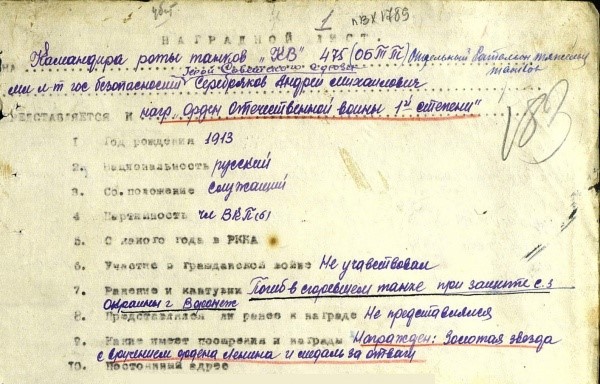 убит
1
п.в X 1789
НАГРАДНОЙ ЛИСТ.
НА Командира роты танков „КВ" 475 (ОБТТ) Отдельный Батальон тяжелых
танков
Герой Советского Союза
мл л-т гос безопасности Серебряков Андрей Михайлович
РЕДСТАВЛЯЕТСЯ К нагр. „Орден Отечественной Войны 1й степени"
183
1 Год рождения 1913
2. Национальность русский
3. Со. положение служащий
4 Партийность чл ВКП(б)
5. С какого года в РККА
6. Участие в гражданской войне Не учавствовал
7. Ранение и контузии Погиб в сгоревшем танке при защите с.з
окраины г Воронеж
8. Представлялся ли ранее к награде Не представлялся
9. Какие имеет поощрения и награды Награжден: Золотая звезда
с вручением ордена Ленина и медаль за отвагу
10. Постоянный адрес